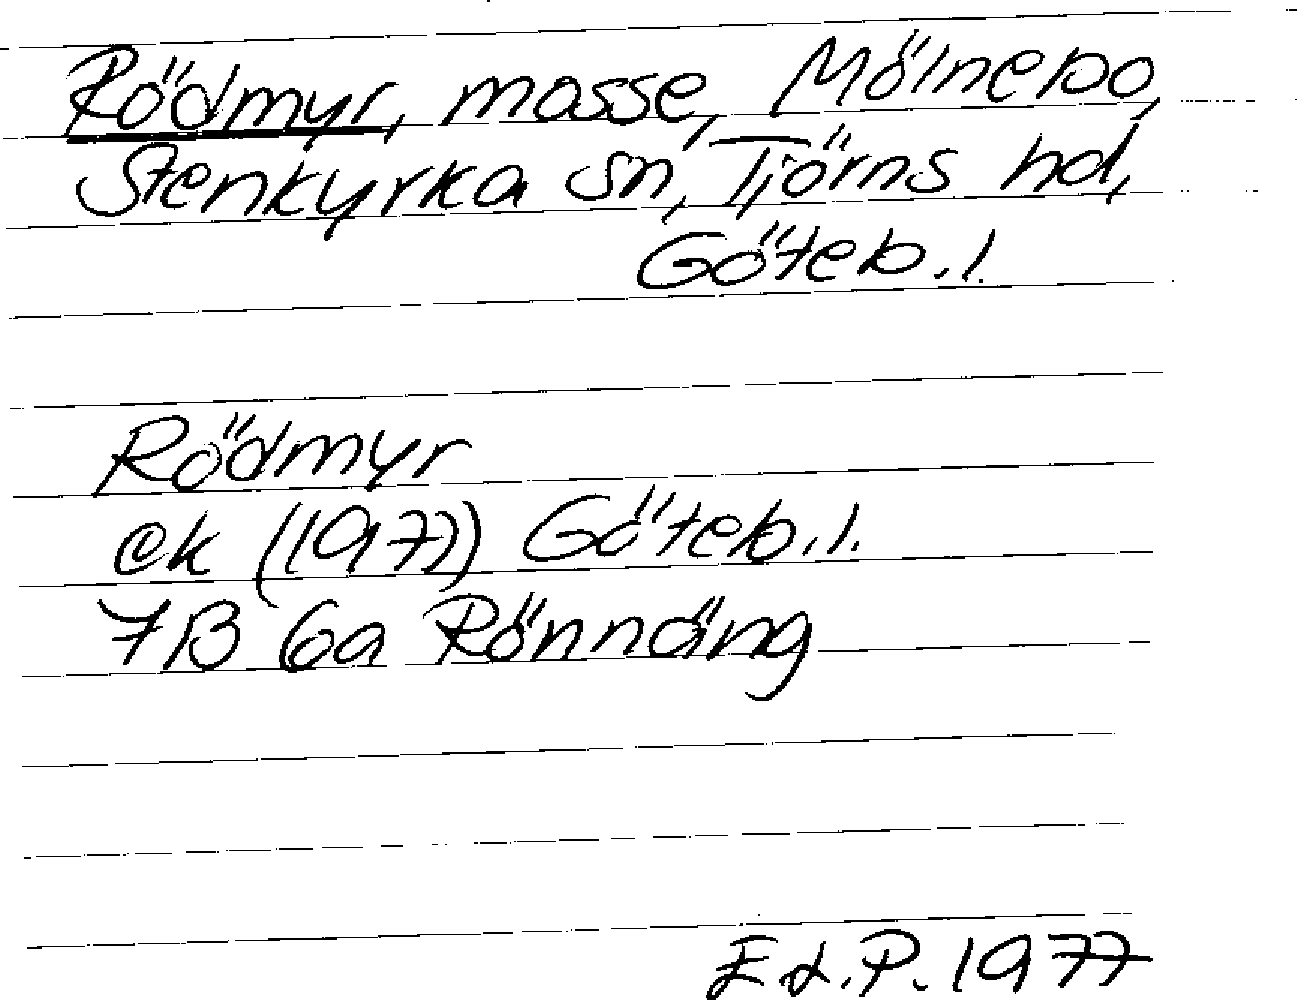 Rödmyr, mosse, Mölnebo,
Stenkyrka sn, Tjörns hd,
Göteb.l.
Rödmyr
ek (1977) Göteb.l.
7B 6a Rönnäng
E d.P. 1977